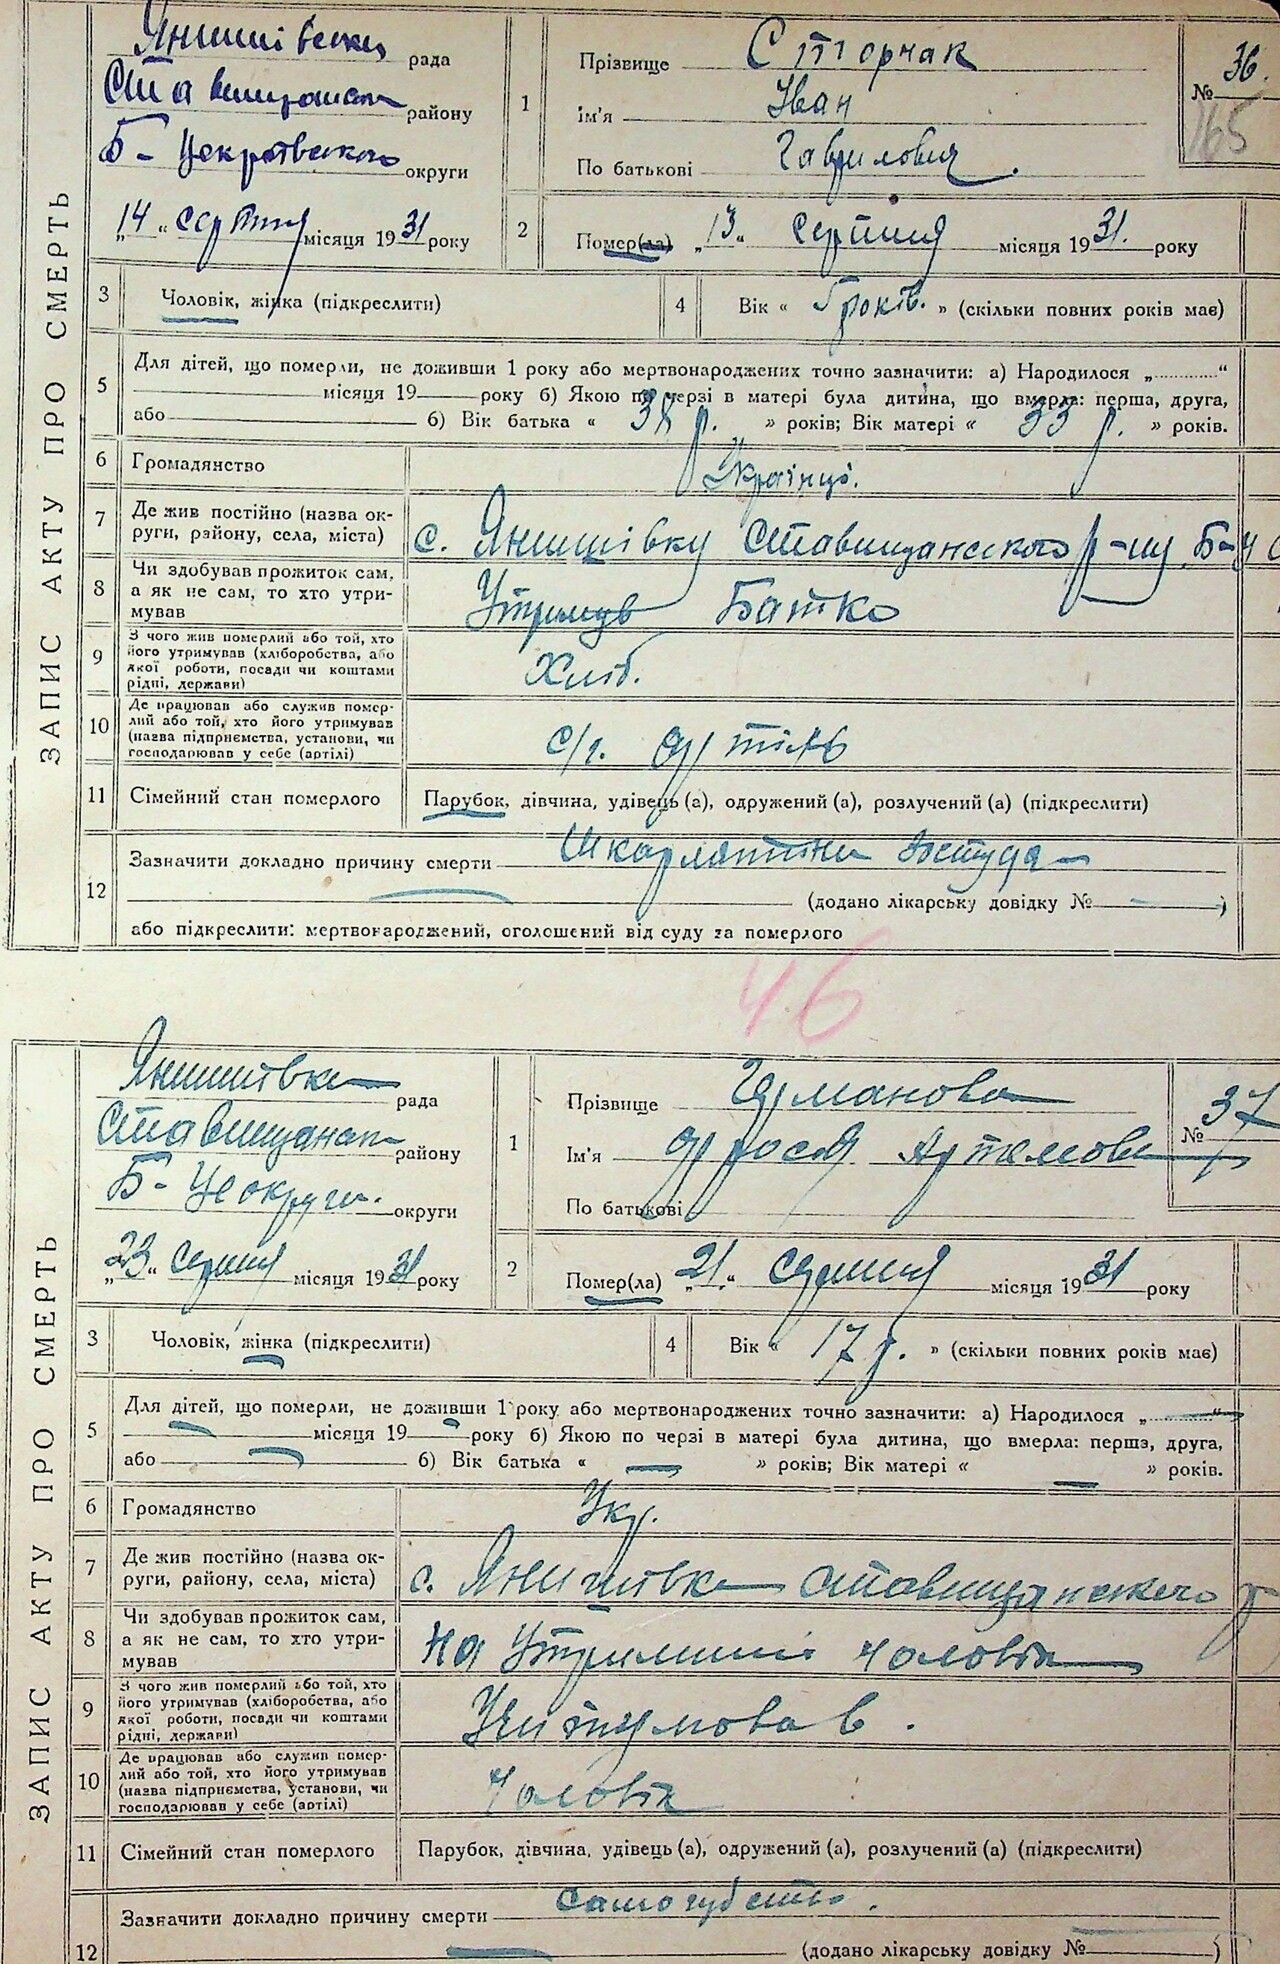 ЗАПИС АКТУ ПРО СМЕРТЬ
рада
району
Б- Церковського округи
„14“ серпня місяця 1931 року
1
Прізвище Сторчак
Ім'я Іван
По батькові Гаврилович.
№ 36.
165
2
Помер(ла) „13“ серпня місяця 1931. року
3 Чоловік, жінка (підкреслити)
4 Вік « 5 років. » (скільки повних років має)
5 Для дітей, що померли, не доживши 1 року або мертвонароджених точно зазначити: а) Народилося „............“
місяця 19 року б) Якою по черзі в матері була дитина, що вмерла: перша, друга,
або б) Вік батька « 38 р. » років; Вік матері « 33 р. » років.
6 Громадянство Українці.
7 Де жив постійно (назва ок-
руги, району, села, міста)
с. Янишівку Ставищанського р-ну Б-Ц
8 Чи здобував прожиток сам,
а як не сам, то хто утри-
мував
Утримув Батко
9 З чого жив померлий або той, хто
його утримував (хліборобства, або
якої роботи, посади чи коштами
рідні, держави)
Хліб.
10 Де працював або служив помер-
лий або той, хто його утримував
(назва підприємства, установи, чи
господарював у себе (артілі)
с/г. артіль
11 Сімейний стан померлого Парубок, дівчина, удівець (а), одружений (а), розлучений (а) (підкреслити)
12 Зазначити докладно причину смерти Шкарлятина
(додано лікарську довідку № )
або підкреслити: мертвонароджений, оголошений від суду за померлого
46
ЗАПИС АКТУ ПРО СМЕРТЬ
Янишівка рада
району
Б- Це округи. округи
„23“ серпня місяця 1931 року
1
Прізвище Гурманова
Ім'я Фрося Артемовна
По батькові
№ 37
2
Помер(ла) „21“ серпня місяця 1931 року
3 Чоловік, жінка (підкреслити)
4 Вік « 17 р. » (скільки повних років має)
5 Для дітей, що померли, не доживши 1 року або мертвонароджених точно зазначити: а) Народилося „............“
місяця 19 року б) Якою по черзі в матері була дитина, що вмерла: перша, друга,
або б) Вік батька « — » років; Вік матері « — » років.
6 Громадянство Укр.
7 Де жив постійно (назва ок-
руги, району, села, міста)
с. Янишівка Ставищанського р
8 Чи здобував прожиток сам,
а як не сам, то хто утри-
мував
на Утриманні чоловіка
9 З чого жив померлий або той, хто
його утримував (хліборобства, або
якої роботи, посади чи коштами
рідні, держави)
10 Де працював або служив помер-
лий або той, хто його утримував
(назва підприємства, установи, чи
господарював у себе (артілі)
Чоловік
11 Сімейний стан померлого Парубок, дівчина, удівець (а), одружений (а), розлучений (а) (підкреслити)
12 Зазначити докладно причину смерти Самогубство.
(додано лікарську довідку № )